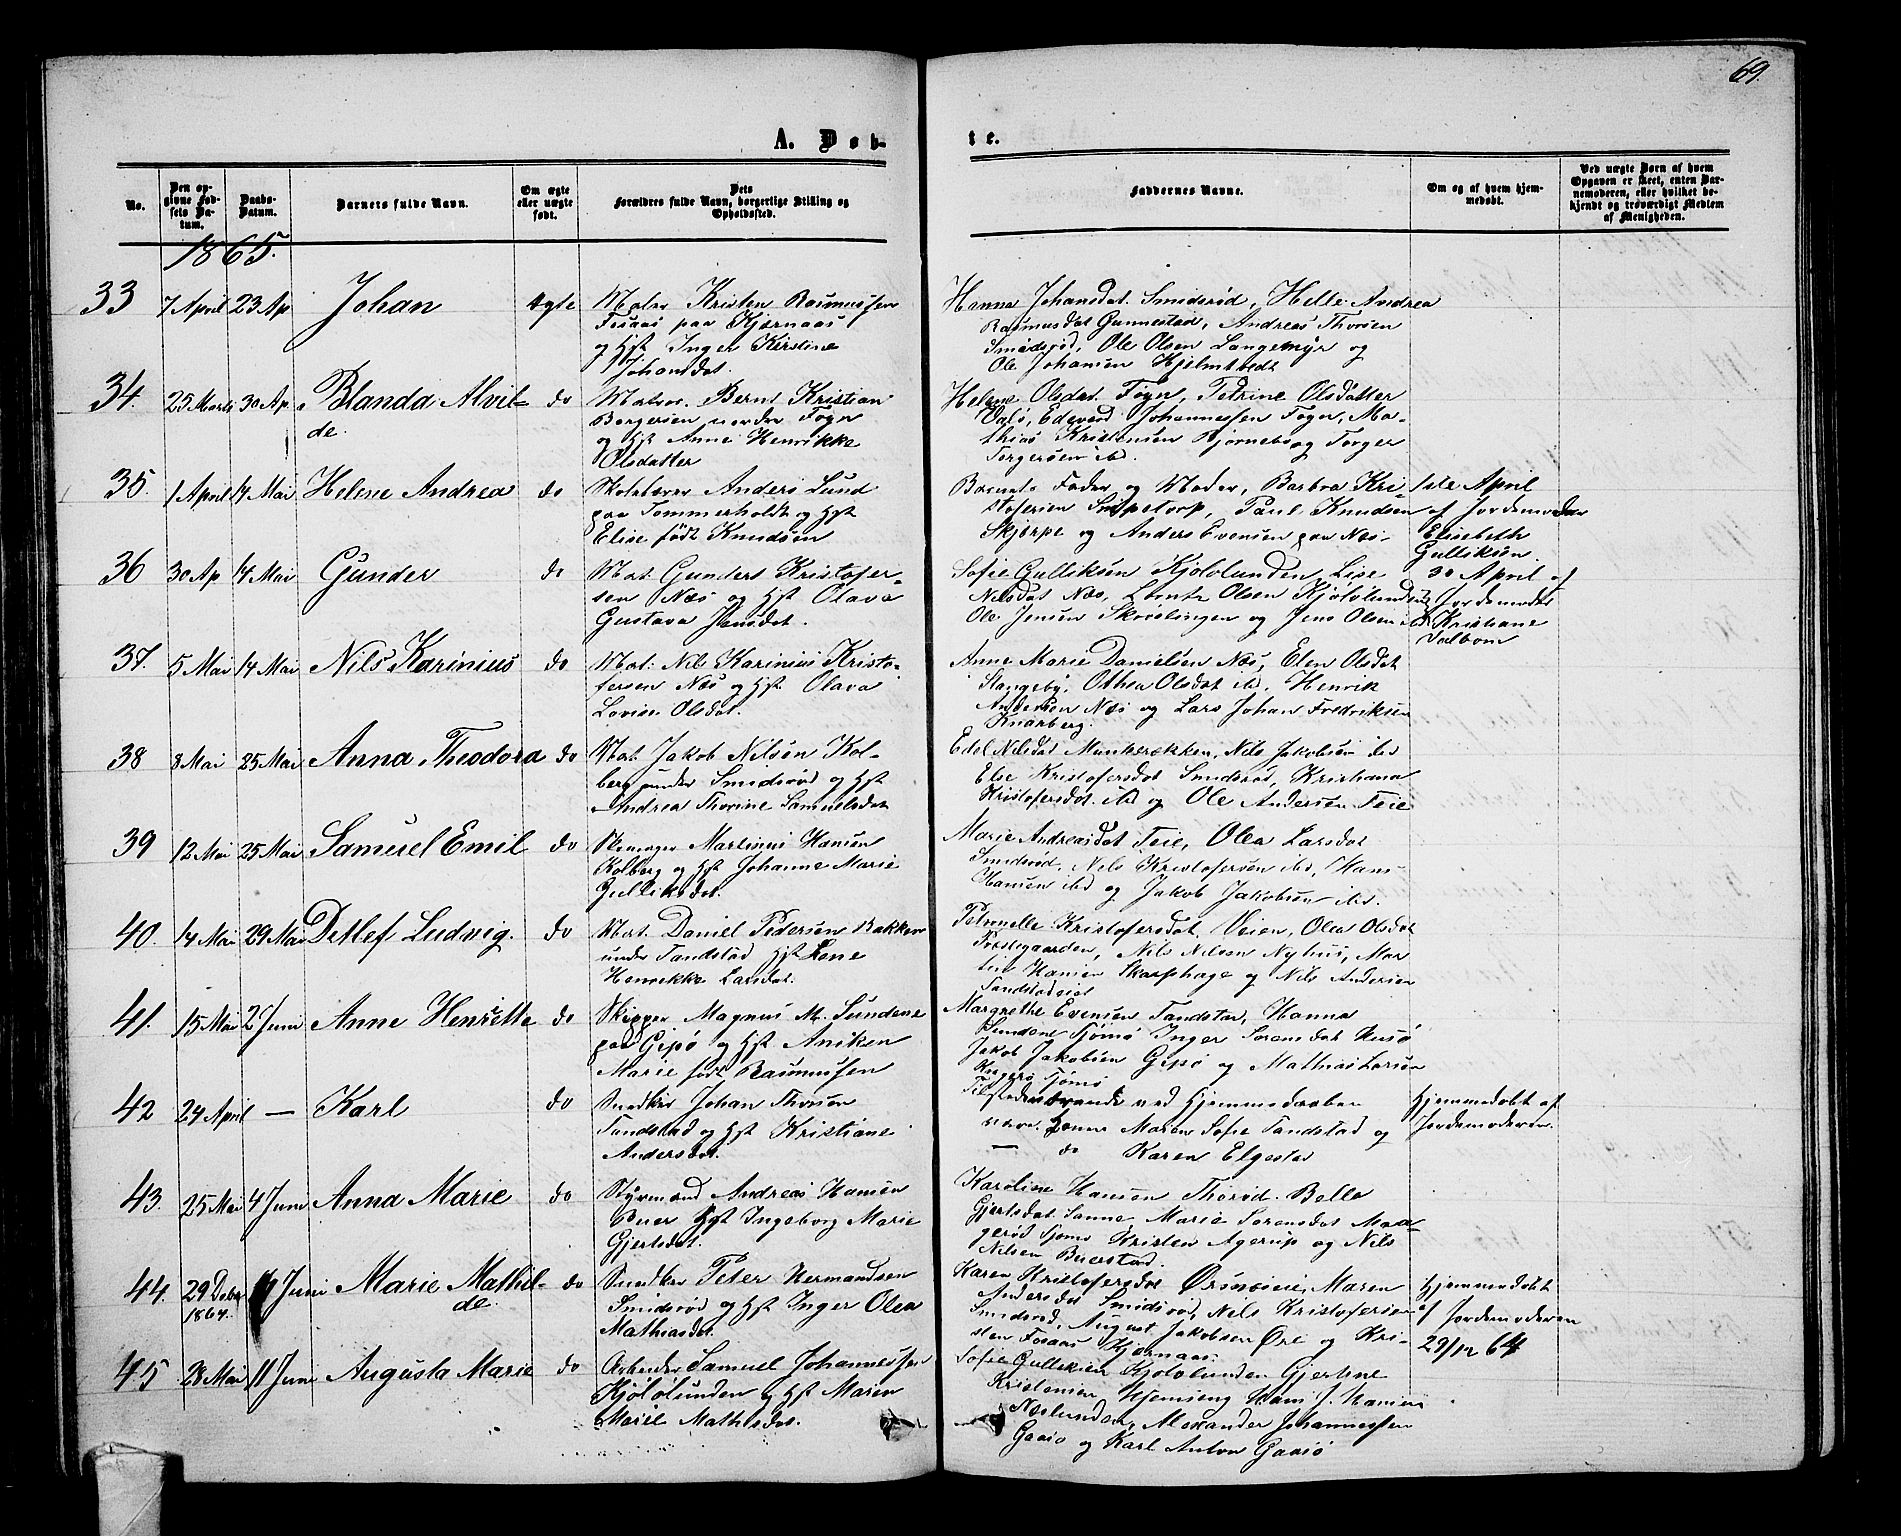 69.
A. Døb-
te.
No.
Den op-
givne Fød-
sels Da-
tum.
Daabs-
Datum.
Barnets fulde Navn.
Om ægte
eller uægte
født.
Dets
Forældres fulde Navn, borgerlige Stilling og
Opholdssted.
Faddernes Navne.
Om og af hvem hjem-
medøbt.
Ved uægte Børn af hvem
Opgaven er skeet, enten Bar-
nemoderen, eller hvilket be-
kjendt og troværdigt Medlem
af Menigheden.
1865.
33 7 April 23 Ap Johan ægte
Matr Kristen Rasmussen
Fosaas paa Kjærnaas
og Hst Inger Kirstine
Johansdat.
Hanna Johansdat. Smidsrød, Helle Andrea
Rasmusdat Gunnestad, Andreas Thorsen
Smidsrød, Ole Olsen Langemyr og
Ole Johansen Hjelmtvedt
34. 25 Marts 30 Ap. Blanda Alvil-
de. do
Matros. Bernt Kristian
Borgersen nordre Føgn
og Hst Anne Henrikke
Olsdatter
Helene Olsdat. Føyn, Petrine Olsdatter
Valø, Edvard Johannessen Føyn, Ma-
thias Kristensen Bjørnebo og Torger
Torgersen ibd.
35. 1 April 14 Mai Helene Andrea do
Skolelærer Anders Lund
paa Tommerholdt og Hst
Elise født Knudsen
Barnets Fader og Moder, Barbra Kri-
stofersen Snipetorp, Paul Knudsen
Skjerpe og Anders Evensen paa Næs-
1ste April
af Jordemoder
Elisebeth
Gulliksen.
36 30 Ap 14 Mai Gunder do
Mat. Gunders Kristofer-
sen Næs og Hst Olava
Gustava Jensdat.
Sofie Gulliksen Kjølølunden, Lise
Nilsdat Næs, Lorntz Olsen Kjølølunden
Ole Jensen Skrøslingen og Jens Olsen ibd
30 April af
Jordemoder
Kristiane
Dalbom
37. 5 Mai 14 Mai Nils Karinius do
Mat: Nils Karinius Kristo-
fersen Næs og Hst. Olava
Lovise Olsdat.
Anne Marie Danielsen Næs, Elen Olsdat
Stangeby, Othea Olsdat ibd. Henrik
Andersen Næs og Lars Johan Fredriksen
Knarberg.
38 8 Mai 25 Mai Anna Theodora do
Mat Jakob Nilsen Kol-
berg under Smidsrød og Hst
Andrea Thorine Samuelsdat
Edel Nilsdat Munkerekken, Nils Jakobsen ibd
Else Kristofersdat Smidsrød, Kristiana
Kristofersdat. ibd og Ole Andersen Teie
39 12 Mai 25 Mai Samuel Emil do
Skomager Martinius Hansen
Kolberg og Hst Johanne Marie
Gulliksdat.
Marie Andreasdat Teie, Olea Larsdat
Smidsrød, Nils Kristofersen ibd, Hans
Hansen ibd og Jakob Jakobsen ibd.
40. 14 Mai 29 Mai Detlef Ludvig. do
Mat. Daniel Pedersen Bakken
under Tandstad Hst Lene
Henrikke Larsdat.
Petronelle Kristofersdat. Veien, Olea Olsdat
Prestegaarden, Nils Nilsen Nyhus, Mar
tin Hansen Skarphage og Nils Andersen
41. 15 Mai 2 Juni Anne Henriette do
Skipper Magnus M. Sundene
paa Gipø og Hst Aniken
Marie født Rasmussen
Margrethe Evensen Tandstad, Hanna
Sundene Tjømø Inger Sorensdat Husø
Jakob Jakobsen Gipø og Mathias Larsen
Tjømø
42 24 April — Karl do
Snedker Johan Thorsen
Tandstad og Hst Kristiane
Andersdat.
Tilstedeværende ved Hjemmedaaben
vare Maren Sofie Tandstad og
— do Karen Elgestad
Hjemmedøbt af
Jordemoderen.
43. 25 Mai 4 Juni Anna Marie do
Styrmand Andreas Hansen
Buer Hst Ingeborg Marie
Gjertsdat.
Karoline Hansen Thorød. Belle
Gjertsdat. Sanne, Marie Sorensdat Maa-
gerød Tjømø Kristen Agerup og Nils
Nilsen Buerstad.
44. 29 Debr
1864. Juni Marie Mathil-
de. do
Snedker Peter Hermansen
Smidsrød og Hst Inger Olea
Mathiasdat.
Karen Kristofersdat Ørsnesie, Maren
Andersdat Smidsrød, Nels Kristofersen
Smidsrød, August Jakobsen Øre og Kri-
sten Fosaas Kjærnaas.
Hjemmedøbt
af Jordemoderen
29/12 64
45 28 Mai 11 Juni Augusta Marie do
Arbeider Samuel Johannessen
Kjølølunden og Hst Maren
Marie Mathisdat.
Sofie Gulliksen Kjølølunden Gjertine
Kristensen Hjemseng Hans J. Hansen
Næslunden, Alexander Johannessen
Gaasø og Karl Anton Gaasø